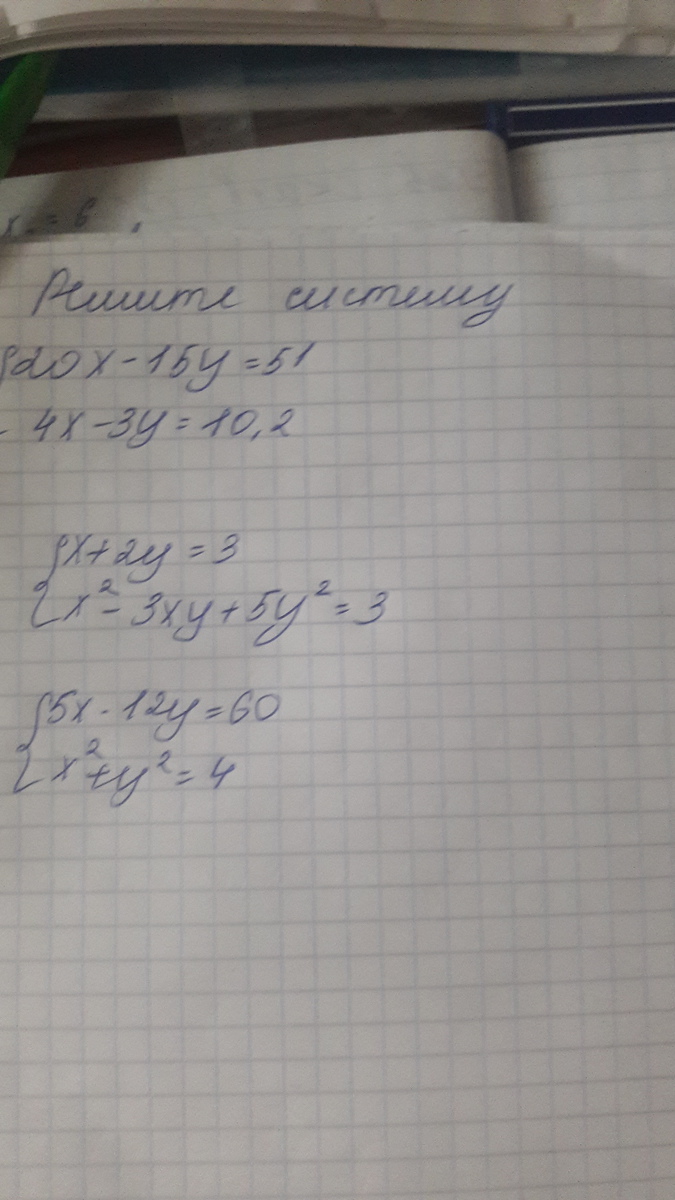 x = 6
Решите систему
{20x-15y=51
4x-3y=10,2
{x+2y=3
x²-3xy+5y²=3
{5x-12y=60
x²+y²=4